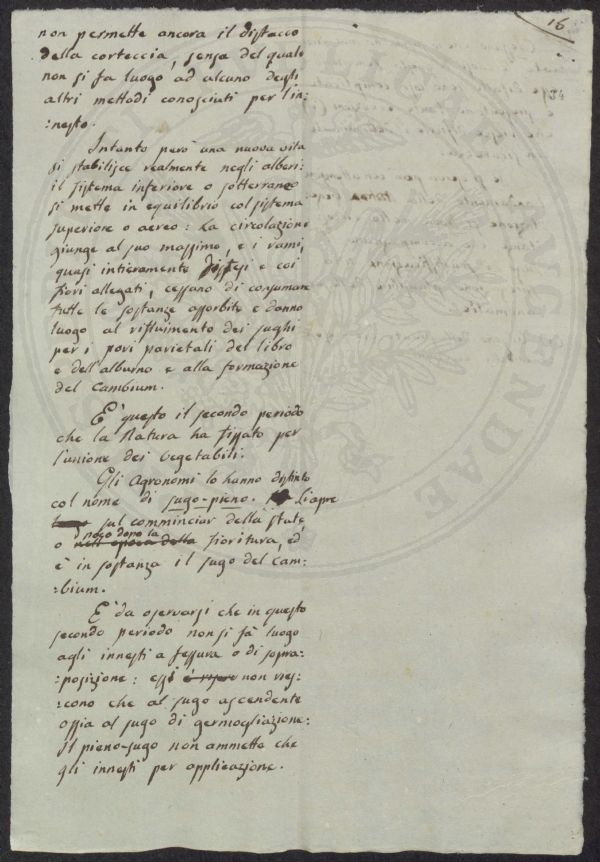 16
34
non permette ancora il distacco
della corteccia, senza del quale
non si fa luogo ad alcuno degli
altri mettodi conosciuti per l'in:
:nesto.
Intanto però una nuova vita
si stabilisce realmente negli alberi:
il sistema inferiore o sotterraneo
si mette in equilibrio col sistema
superiore o aereo: La circolazione
giunge al suo massimo, e i rami,
quasi intieramente distesi e coi
fiori allegati, cessano di consumare
tutte le sostanze assorbite e danno
luogo al rifluimento dei sughi
per i pori parietali del libro
e dell'alburno e alla formazione
del Cambium.
E' questo il secondo periodo
che la Natura ha fissato per
l'unione dei vegetabili.
Gli Agronomi lo hanno distinto
col nome di sugo-pieno. Si apre
sul comminciar della state,
o poco dopo la nell'epoca della fioritura, ed
è in sostanza il sugo del Cam:
:bium.
E' da osservarsi che in questo
secondo periodo non si fà luogo
agli innesti a fessura o di sopra:
:posizione: essi non ries:
:cono che al sugo ascendente
ossia al sugo di germogliazione:
Il pieno-sugo non ammette che
gli innesti per applicazione.